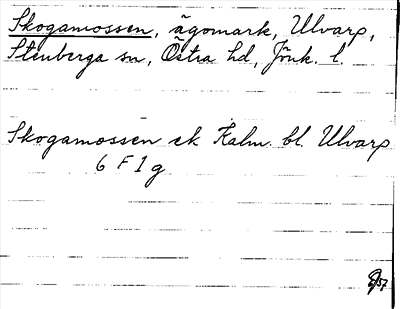 Skogamossen, ägomark, Ulvarp,
Stenberga sn, Östra hd, Jönk. l.
Skogamossen ek Kalm. bl. Ulvarp
6 F 1 g